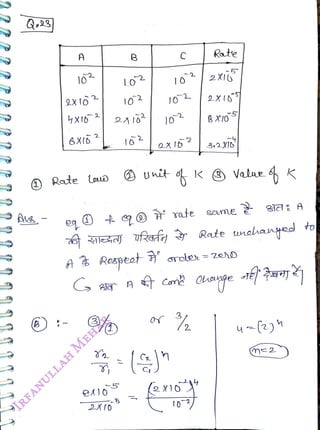 Q.23
A B C Rate
10⁻² 10⁻² 10⁻² 2×10⁻⁵
2×10⁻² 10⁻² 10⁻² 2×10⁻⁵
4×10⁻² 2×10⁻² 10⁻² 8×10⁻⁵
6×10⁻² 10⁻² 2×10⁻² 3.2×10⁻⁴
① Rate Law ② Unit of K ③ Value of K
Ans:- eq ① & eq ② में rate same है अतः A
की सान्द्रता परिवर्तन से Rate unchanged to
A के Respect में order = zero
↳ अब A की Conc change नहीं देखना है।
Ⓑ :- 3/1 or 3/2
r₂/r₁ = (C₂/C₁)ⁿ
8×10⁻⁵/2×10⁻⁵ = (2×10⁻²/10⁻²)ⁿ
4 = (2)ⁿ
n=2
IRFANULLAH